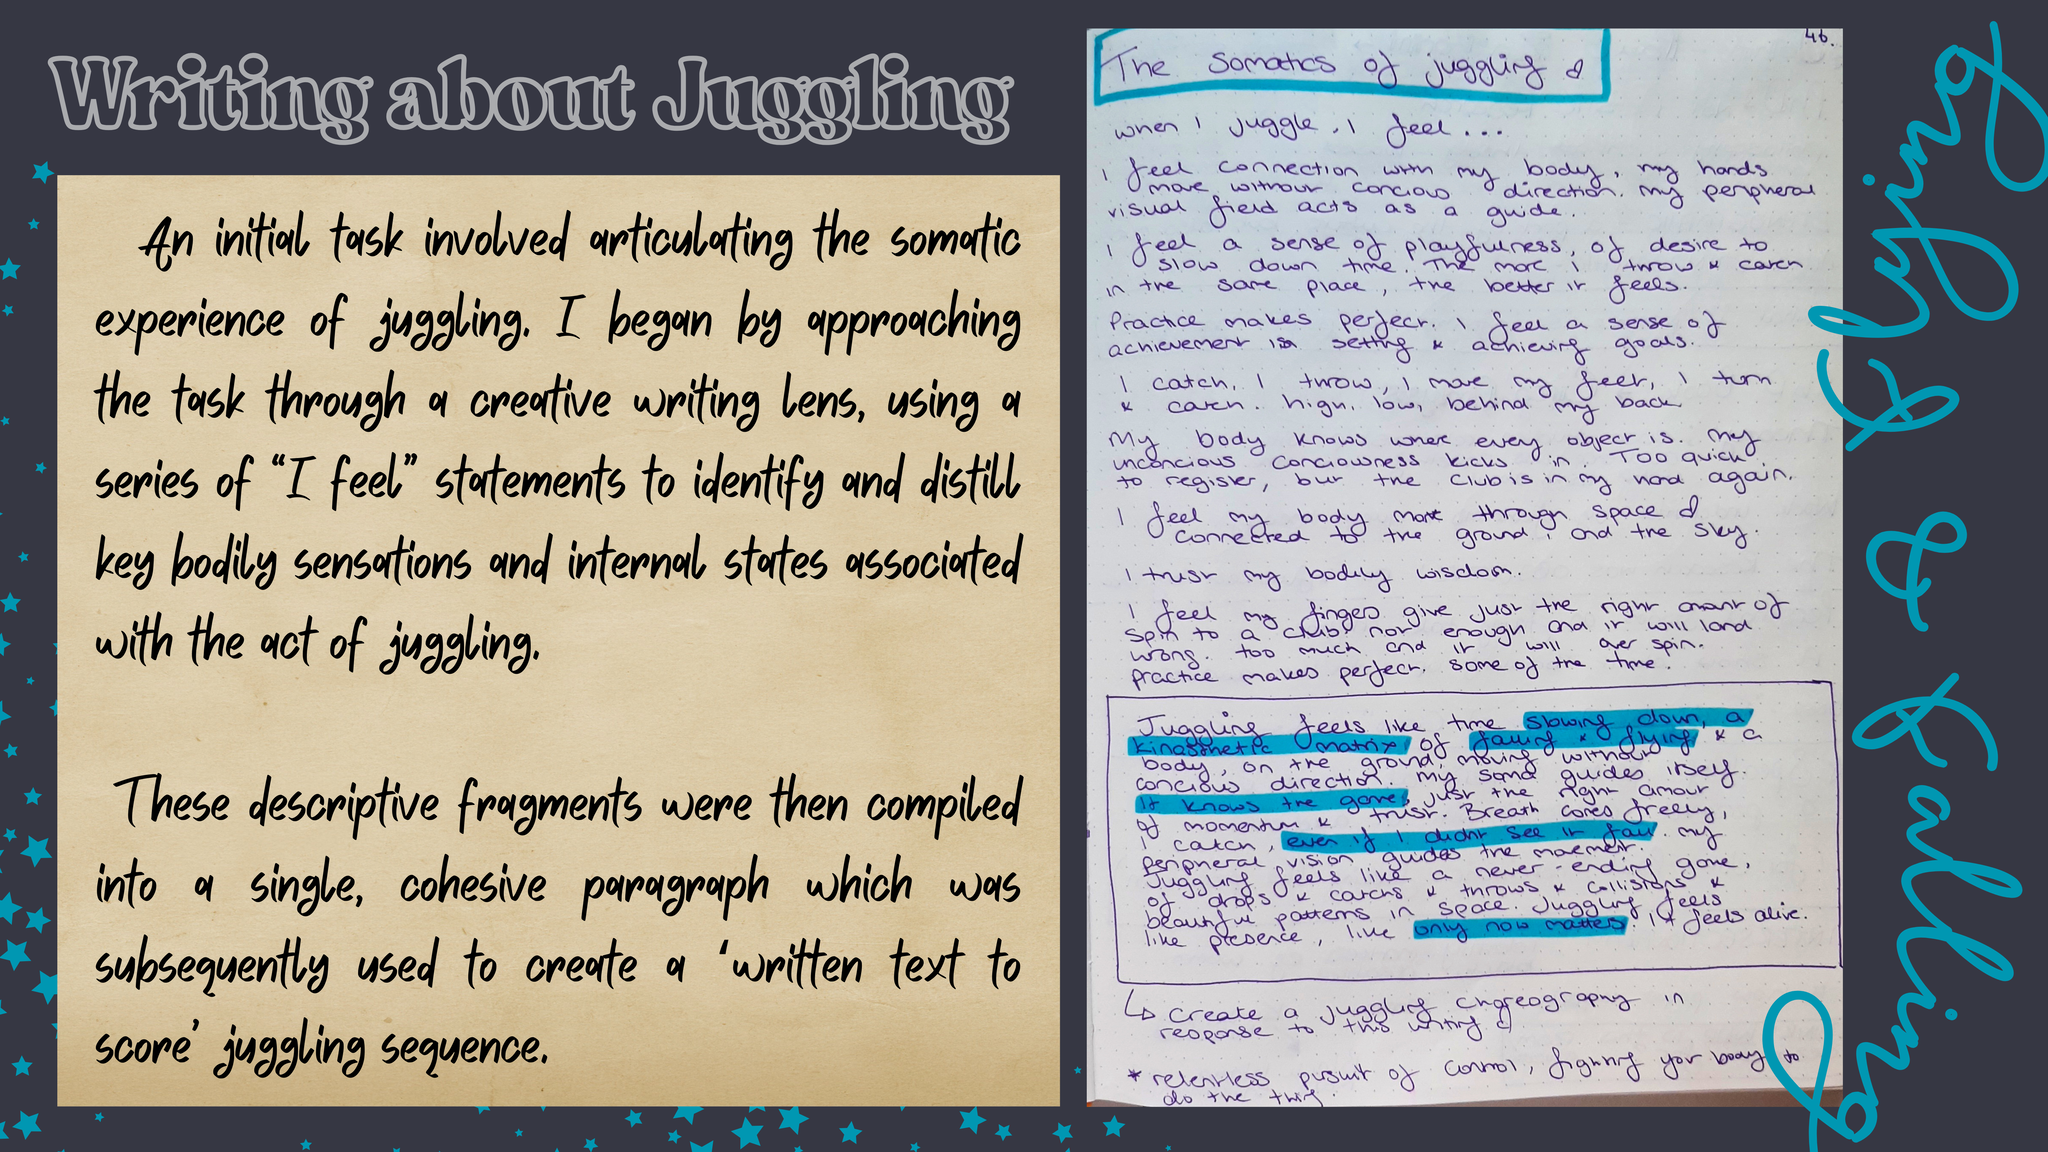 Writing about Juggling
An initial task involved articulating the somatic
experience of juggling. I began by approaching
the task through a creative writing lens, using a
series of “I feel” statements to identify and distill
key bodily sensations and internal states associated
with the act of juggling.
These descriptive fragments were then compiled
into a single, cohesive paragraph which was
subsequently used to create a ‘written text to
score’ juggling sequence.
46.
The Somatics of juggling &
when I juggle, I feel...
I feel connection with my body, my hands
move without concious direction. my peripheral
visual field acts as a guide.
I feel a sense of playfulness, of desire to
slow down time. The more I throw & catch
in the same place, the better it feels.
Practice makes perfect. I feel a sense of
achievement in setting & achieving goals.
I catch, I throw, I move my feet, I turn
& catch. high, low, behind my back
My body knows where every object is. my
unconcious conciowness kicks in. Too quick
to register, but the club is in my hand again.
I feel my body move through space &
connected to the ground, and the sky.
I trust my bodily wisdom.
I feel my finges give just the right amount of
spin to a club. not enough and it will land
wrong. too much and it will over spin.
practice makes perfect. some of the time.
Juggling feels like time slowing down, a
kinasthetic matrix of falling & flying & a
body, on the ground, moving without
concious direction. my soma guides itself.
It knows the game, just the right amout
of momentum & trust. Breath comes freely,
I catch, even if I didnt see it fall. my
peripheral vision guides the movement.
Juggling feels like a never-ending game,
of drops & catchs & throws & collisions &
beautiful patterns in space. Juggling feels
like presence, like only now matters. It feels alive.
↳ create a juggling choreography in
response to this writing
* relentless pursuit of control, fighting your body to
do the thing.
Flying & Falling